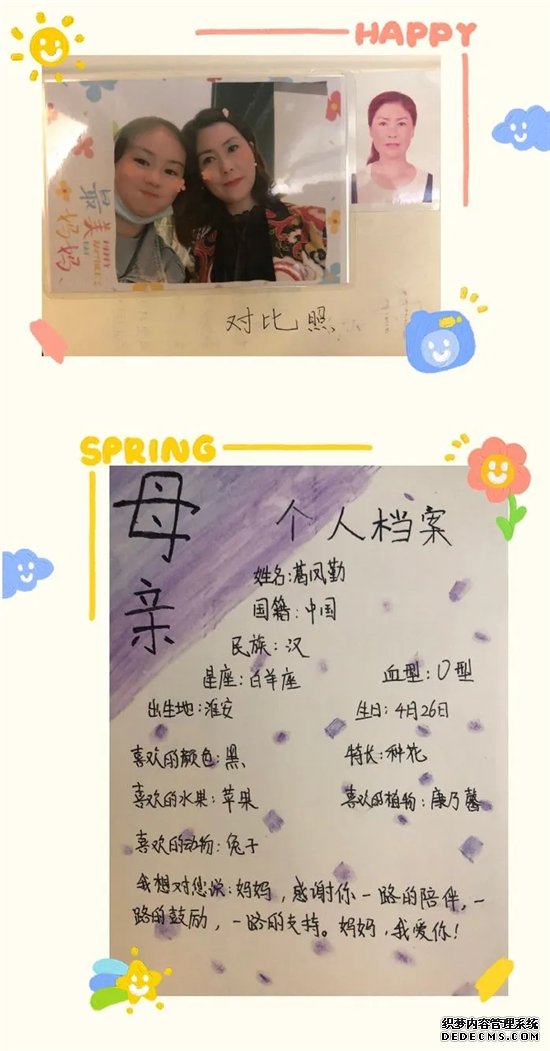 HAPPY
最美
妈妈
对比照
SPRING
母亲
个人档案
姓名:葛凤勤
国籍:中国
民族:汉
星座:白羊座
血型:O型
出生地:淮安
生日:4月26日
喜欢的颜色:黑
特长:种花
喜欢的水果:苹果
喜欢的植物:康乃馨
喜欢的动物:兔子
我想对您说:妈妈,感谢你一路的陪伴,一
路的鼓励,一路的支持。妈妈,我爱你!
织梦内容管理系统
DEDECMS.COM